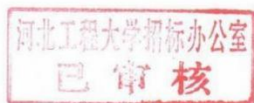 河北工程大学招标办公室
已审核